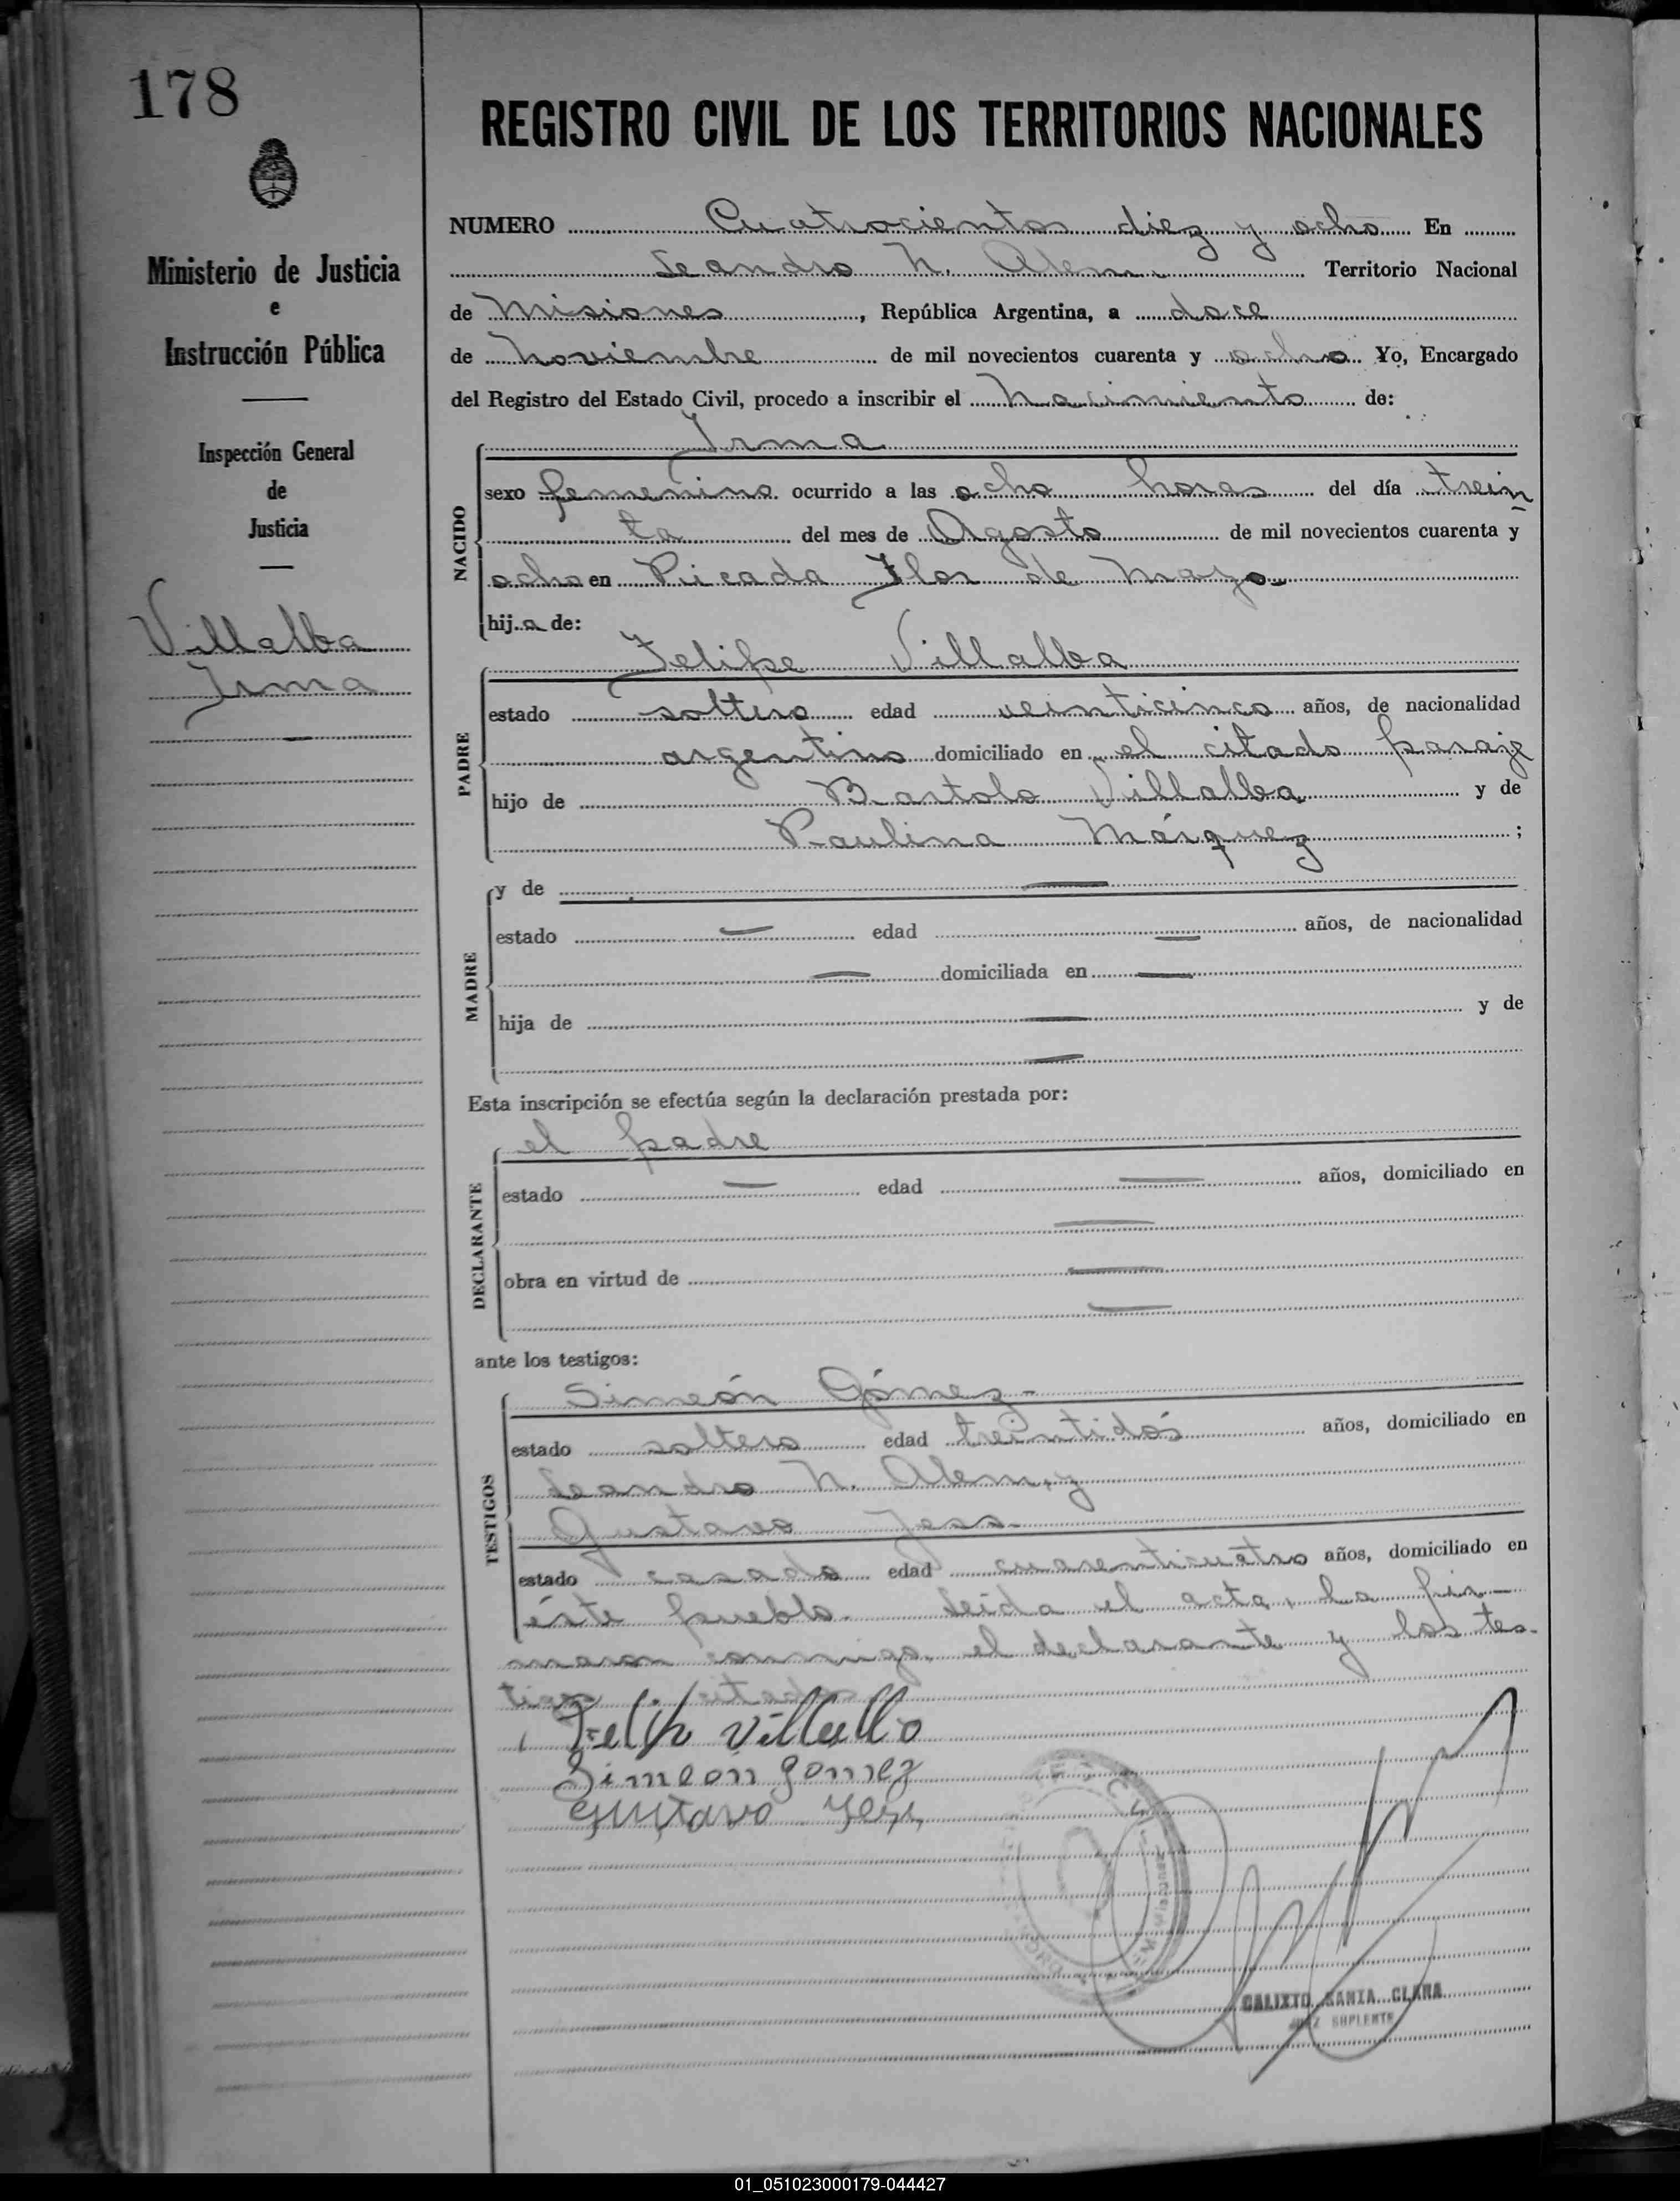 178
Ministerio de Justicia
e
Instrucción Pública
Inspección General
de
Justicia
Villalba
Irma
REGISTRO CIVIL DE LOS TERRITORIOS NACIONALES
NUMERO Cuatrocientos diez y ocho En
Leandro N. Alem Territorio Nacional
de Misiones, República Argentina, a doce
de Noviembre de mil novecientos cuarenta y ocho Yo, Encargado
del Registro del Estado Civil, procedo a inscribir el Nacimiento de:
Irma
NACIDO
sexo femenino ocurrido a las ocho horas del día trein
ta del mes de Agosto de mil novecientos cuarenta y
ocho en Picada Flor de Mayo
hija de:
Felipe Villalba
PADRE
estado soltero edad veinticinco años, de nacionalidad
argentino domiciliado en el citado paraje
hijo de Bartolo Villalba y de
Paulina Márquez ;
MADRE
y de —
estado — edad — años, de nacionalidad
— domiciliada en —
hija de — y de
—
Esta inscripción se efectúa según la declaración prestada por:
el padre
DECLARANTE
estado — edad — años, domiciliado en
—
obra en virtud de —
—
ante los testigos:
Simeón Gómez-
TESTIGOS
estado soltero edad treintidós años, domiciliado en
Leandro N. Alem, y
Gustavo Jess-
estado casado edad cuarenticuatro años, domiciliado en
éste pueblo. Leída el acta, la fir-
maron conmigo, el declarante y los tes-
tigos citados
Felipe Villalba
Simeon gomez
gustavo
CALIXTO SANTA CLARA
JUEZ SUPLENTE
01_051023000179-044427